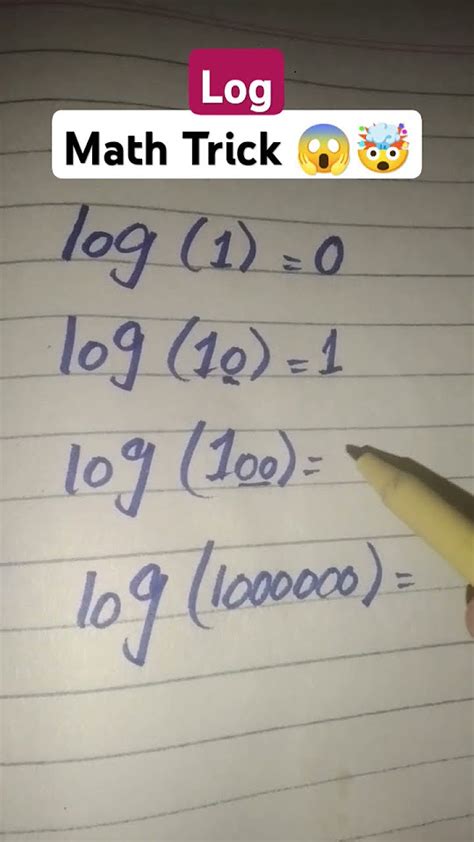 Log
Math Trick 😱🤯
log (1) = 0
log (10) = 1
log (100) =
log (1000000) =